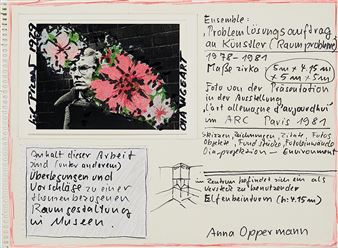 Ensemble:
"Problemlösungsauftrag
an Künstler (Raumprobleme)
1978-1981
Maße zirka 6m x 4.15 m
x 5m x 5m
Foto von der Präsentation
in der Ausstellung
"L'art allemagne d'aujourd'hui"
im ARC Paris 1981
Skizzen, Zeichnungen, Zitate, Fotos
Objekte, Fundstücke, Fotoleinwände
Dia-projektion - Environment
MARGEART
Inhalt dieser Arbeit
sind (unter anderem)
Überlegungen und
Vorschläge zu einer
themenbezogenen
Raumgestaltung
in Museen.
im Zentrum befindet sich ein als
Versteck zu benutzender
Elfenbeinturm (h: 4.15m)
Anna Oppermann